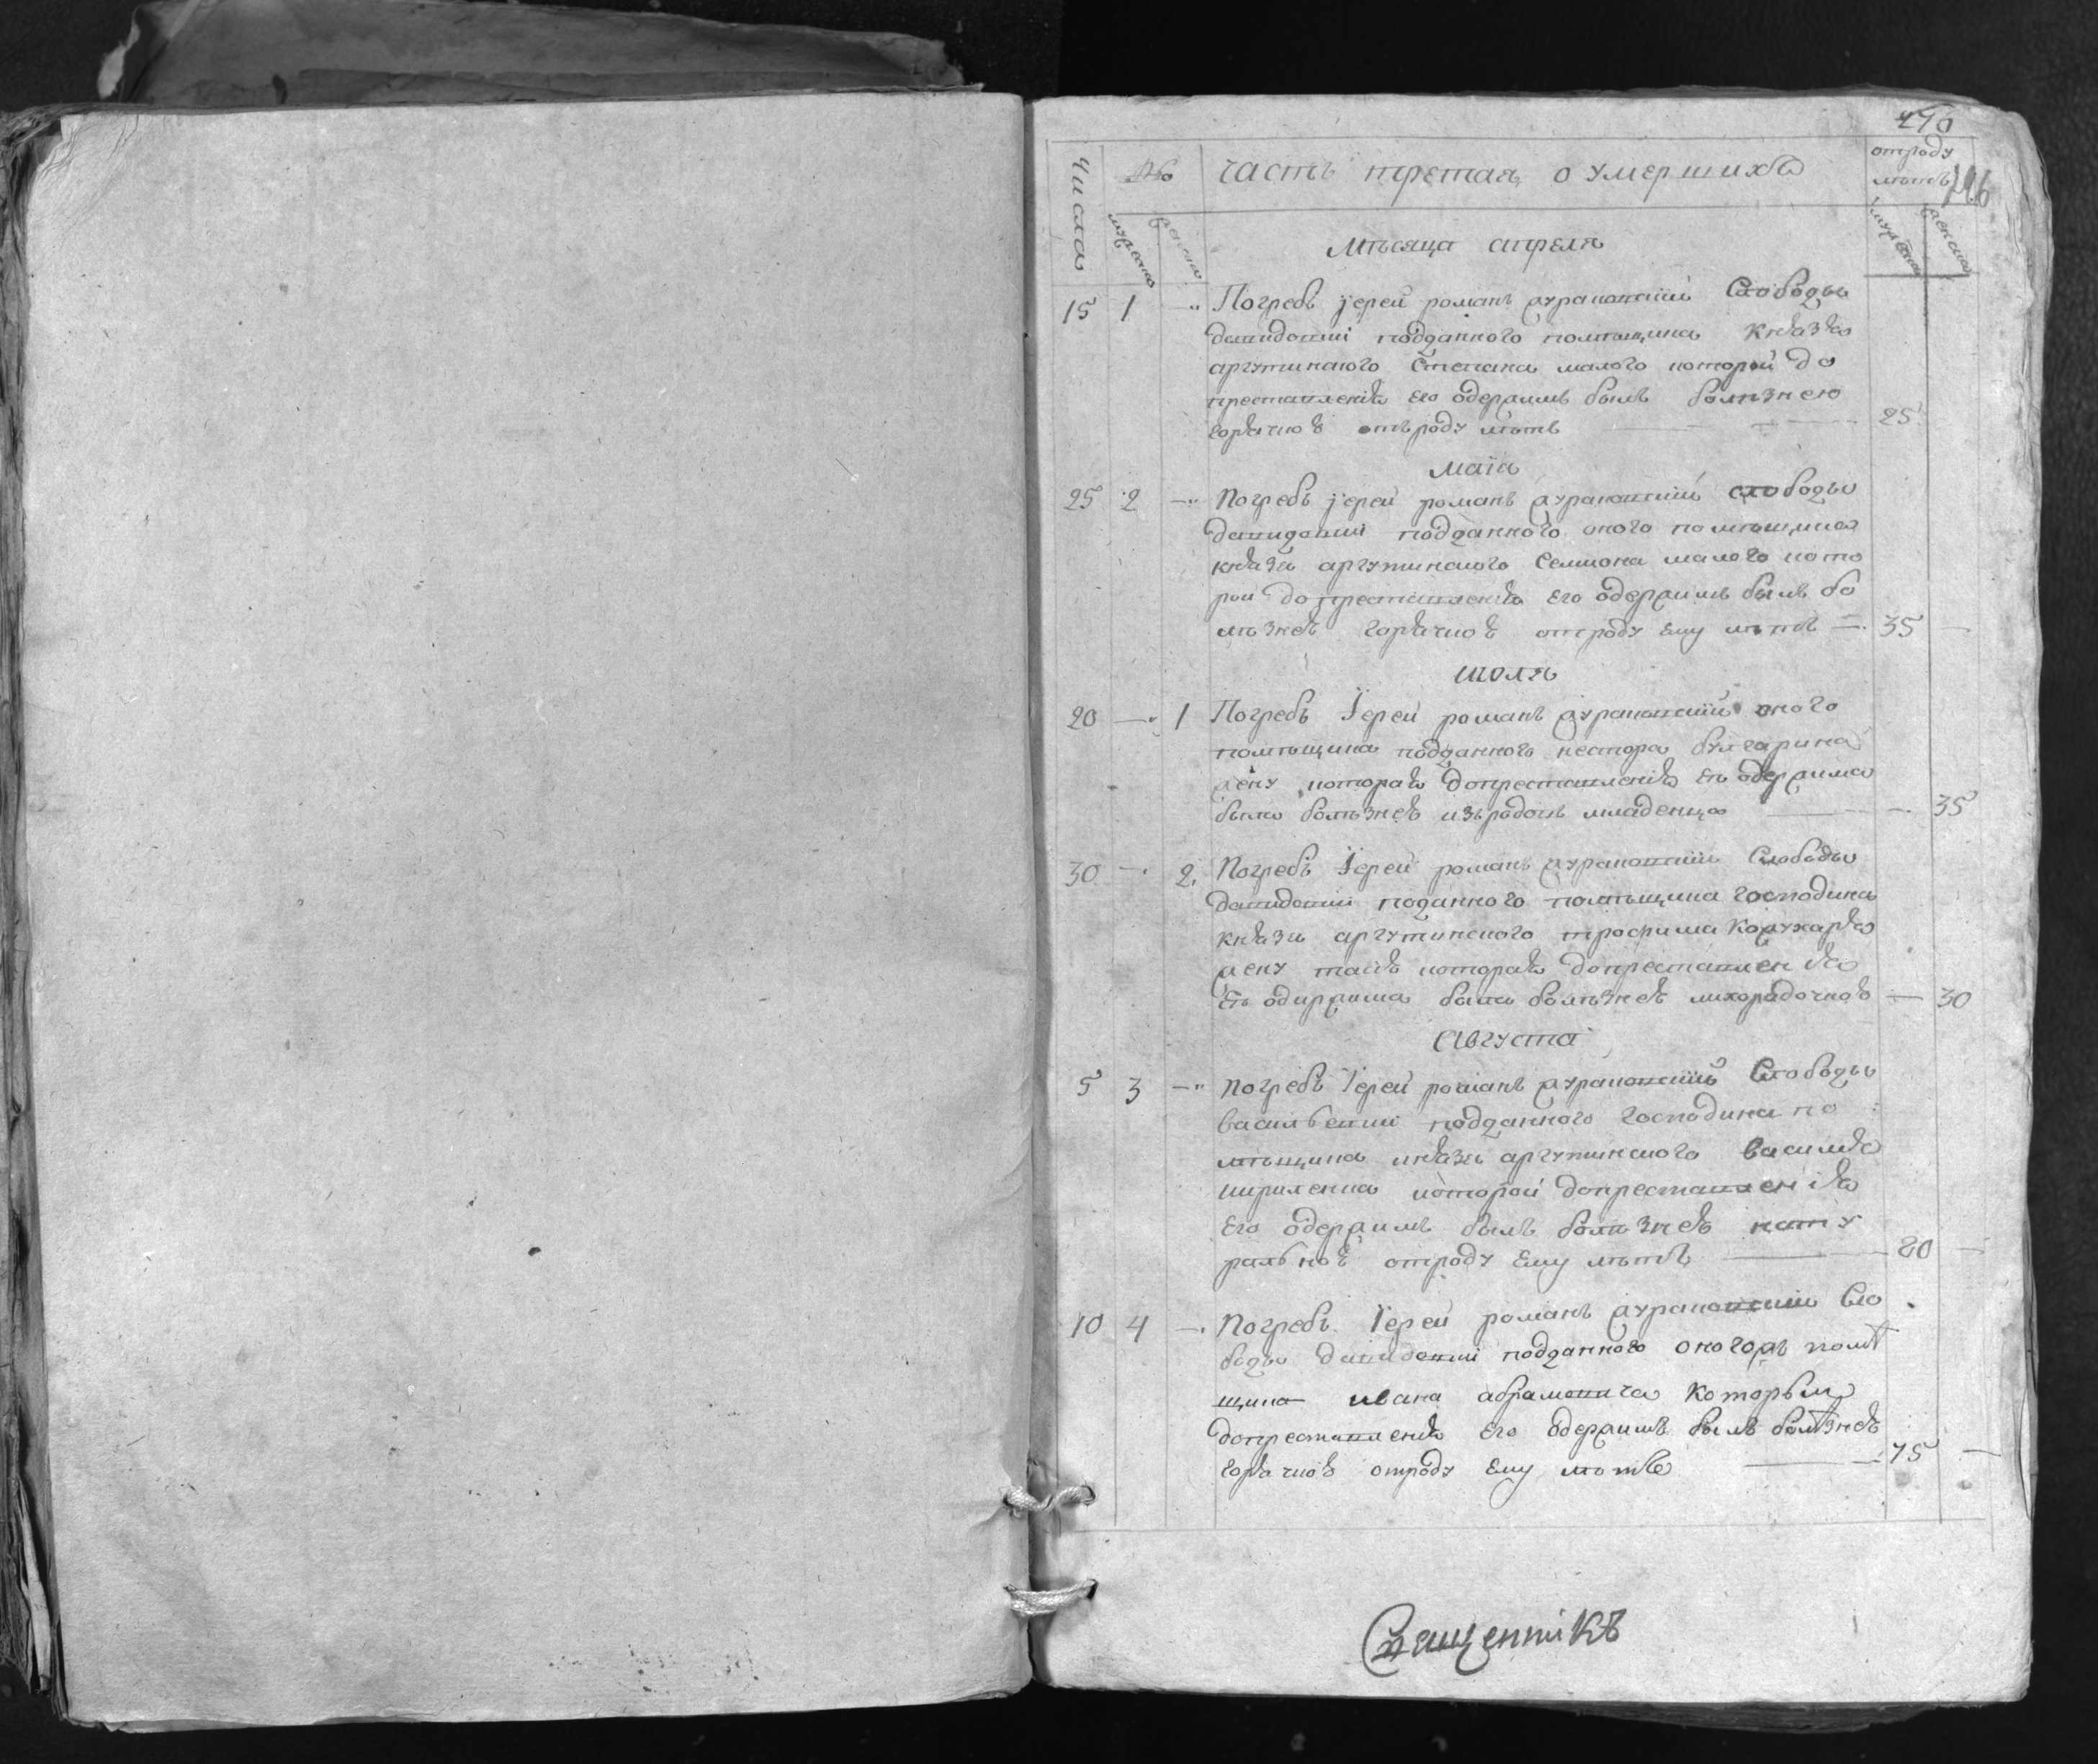 290
Числа № часть третая о умершихъ отроду летъ 146
мужеска женска мужеска женска
Мѣсяца апреля
15 1 -" Погребъ іерей романъ журавовскій Слободы
давидовки подданного помѣщика князя
аргутинского Степана малого которой до
преставленія его одержимъ былъ болѣзнею
горячкою отъроду лѣтъ 25
Маїа
25 2 -" Погребъ іерей романъ журавовскій слободы
давидовки подданного оного помѣщика
князя аргутинского Семиона малого кото
рой до преставленія его одержимъ былъ бо
лѣзнею горячкою отроду ему лѣтъ 35 -
июля
20 -" 1 Погребъ Іерей романъ журавовскій оного
помѣщика подданного нестора булгарина
жену которая допреставленія ея одержима
была болѣзнею изъродовъ младенца - 35
30 - 2 Погребъ Іерей романъ журавовскій Слободы
давидовки поданного помѣщика господина
князя аргутинского трофима Кожухаря
жену которая допреставленія
ея одиржима была болѣзнею лихорадочною - 30
Августа
5 3 -" Погребъ Іерей романъ журавовскій Слободы
васильевки подданного господина по
мѣщика князя аргутинского василія
кириленка которой допреставленія
его одержимъ былъ болѣзнею нату
ральною отроду ему лѣтъ 80 -
10 4 - Погребъ Іерей романъ журавовскій Сло
боды давидовки подданного оногожъ помѣ
щика ивана абрамовича Которьи
допреставленія его одержимъ былъ болѣзнею
горячкою отроду ему лѣтъ 75 -
Священникъ